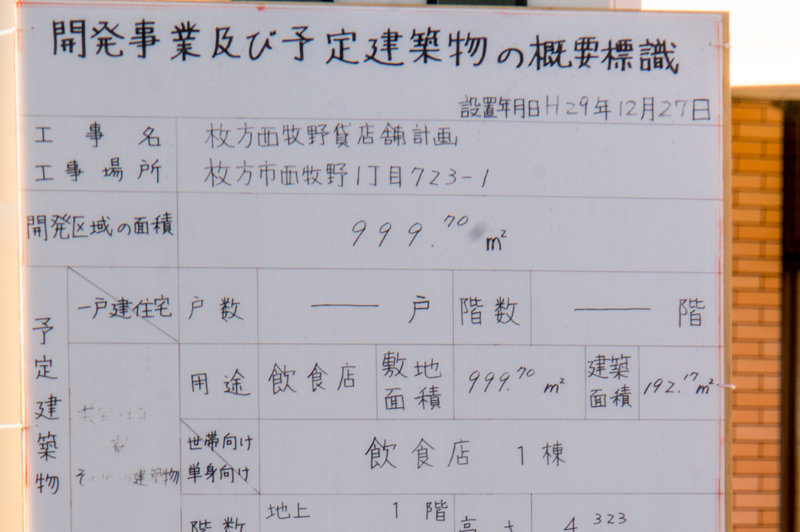 開発事業及び予定建築物の概要標識
設置年月日 H29年12月27日
工事名 枚方西牧野貸店舗計画
工事場所 枚方市西牧野1丁目723-1
開発区域の面積 999.70 m²
予定建築物
一戸建住宅 戸数 ― 戸 階数 ― 階
用途 飲食店 敷地面積 999.70 m² 建築面積 192.17 m²
建築物
世帯向け
単身向け
飲食店 1棟
階数 地上 1階 高さ 4.323